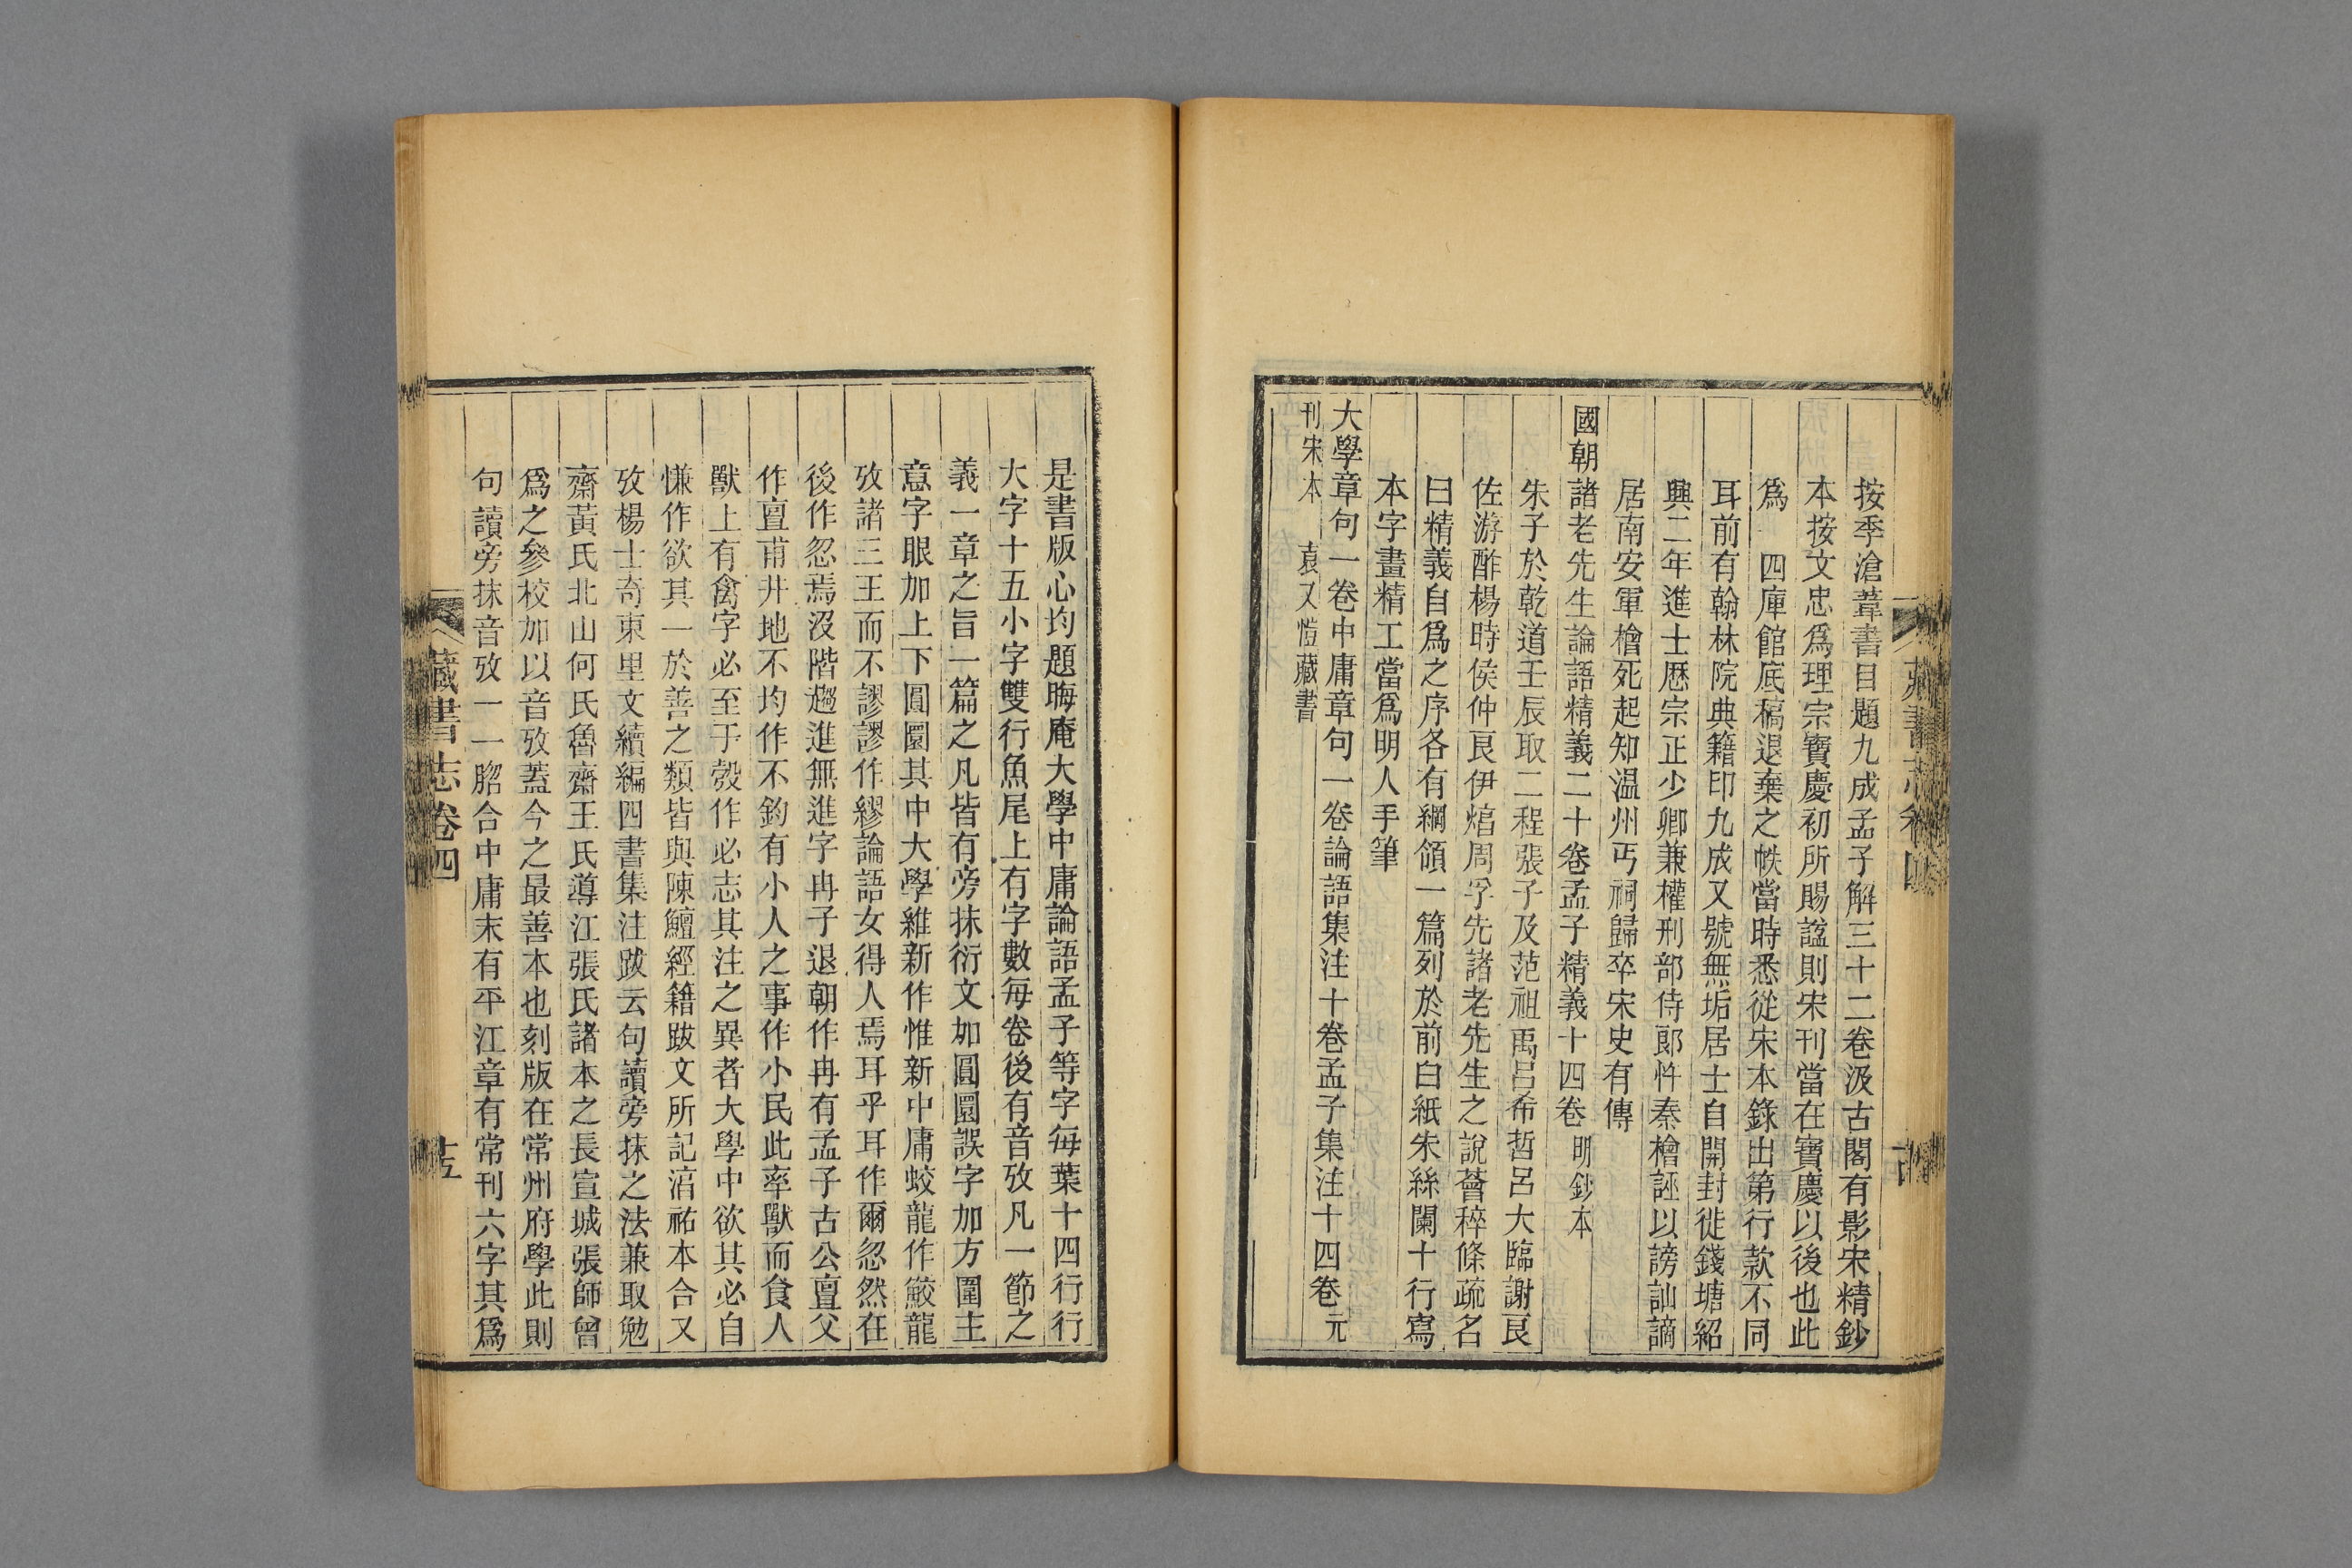 按季滄葦書目題九成孟子解三十二卷汲古閣有影宋精鈔
本按文忠爲理宗寶慶初所賜諡則宋刊當在寶慶以後也此
爲　四庫館底稿退棄之帙當時悉從宋本錄出第行款不同
耳前有翰林院典籍印九成又號無垢居士自開封徙錢塘紹
興二年進士厯宗正少卿兼權刑部侍郎忤秦檜誣以謗訕謫
居南安軍檜死起知温州丐祠歸卒宋史有傳
國朝諸老先生論語精義二十卷孟子精義十四卷 明鈔本
朱子於乾道壬辰取二程張子及范祖禹呂希哲呂大臨謝良
佐游酢楊時侯仲良伊焞周孚先諸老先生之說薈稡條疏名
曰精義自爲之序各有綱領一篇列於前白紙朱絲闌十行寫
本字畫精工當爲明人手筆
大學章句一卷中庸章句一卷論語集注十卷孟子集注十四卷 元
刊宋本　袁又愷藏書
藏書志卷四
是書版心均題晦庵大學中庸論語孟子等字每葉十四行行
大字十五小字雙行魚尾上有字數每卷後有音攷凡一節之
義一章之旨一篇之凡皆有旁抹衍文加圓圍誤字加方圍主
意字眼加上下圓圍其中大學維新作惟新中庸蛟龍作鮫龍
攷諸三王而不謬謬作繆論語女得人焉耳乎耳作爾忽然在
後作忽焉沒階趨進無進字冉子退朝作冉有孟子古公亶父
作亶甫井地不均作不鈞有小人之事作小民此率獸而食人
獸上有禽字必至于彀作必志其注之異者大學中欲其必自
慊作欲其一於善之類皆與陳鱣經籍跋文所記淳祐本合又
攷楊士奇東里文續編四書集注跋云句讀旁抹之法兼取勉
齋黃氏北山何氏魯齋王氏導江張氏諸本之長宣城張師曾
爲之參校加以音攷蓋今之最善本也刻版在常州府學此則
句讀旁抹音攷一一脗合中庸末有平江章有常刊六字其爲
藏書志卷四
十五